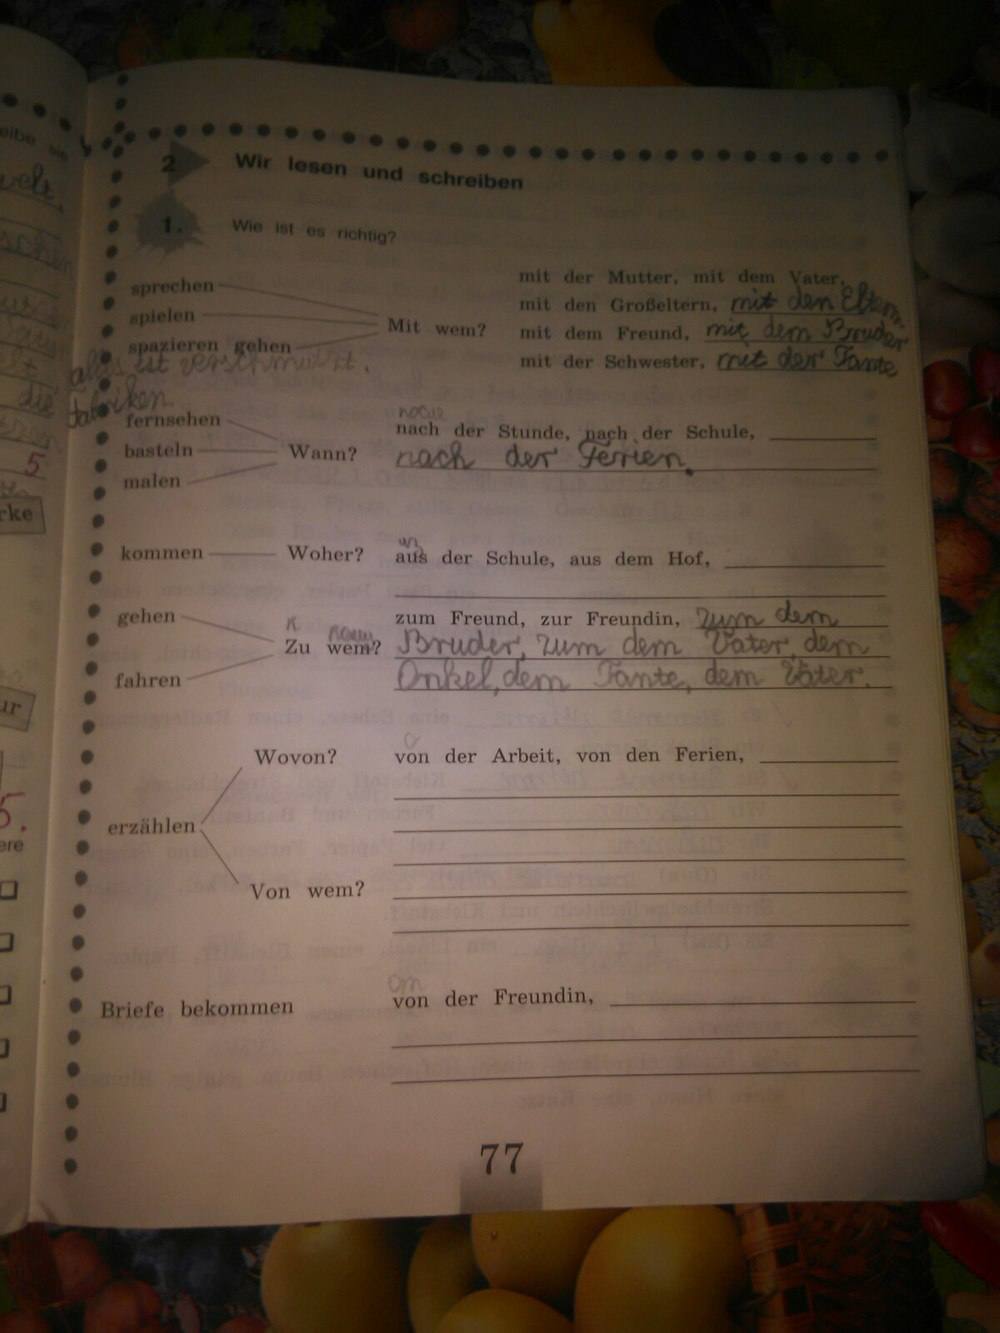 2 Wir lesen und schreiben
1. Wie ist es richtig?
sprechen
spielen
spazieren gehen
Mit wem?
mit der Mutter, mit dem Vater,
mit den Großeltern, mit den Eltern
mit dem Freund, mit dem Bruder
mit der Schwester, mit der Tante
alles ist verschmutzt.
die Fabriken
fernsehen
basteln
malen
Wann?
nach der Stunde, nach der Schule,
nach der Ferien.
kommen
Woher?
aus der Schule, aus dem Hof,
gehen
fahren
Zu wem?
zum Freund, zur Freundin, zum dem
Bruder, zum dem Vater, dem
Onkel, dem Tante, dem Väter.
erzählen
Wovon?
von der Arbeit, von den Ferien,
Von wem?
Briefe bekommen
von der Freundin,
77